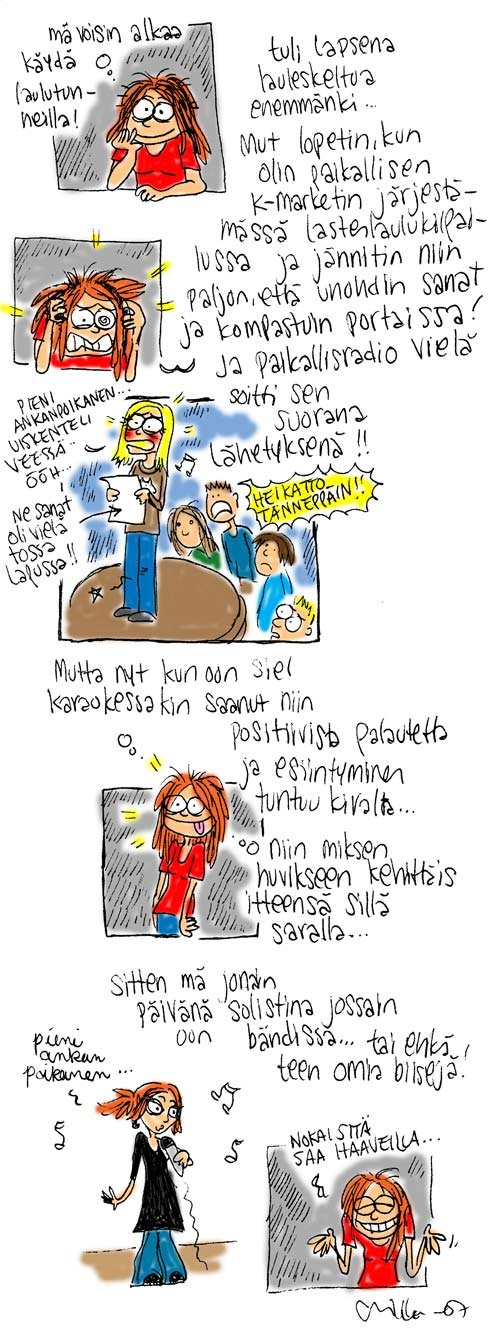 mä voisin alkaa
käydä
laulutun-
neilla!
tuli lapsena
lauleskeltua
enemmänki...
Mut lopetin, kun
olin paikallisen
K-marketin järjestä-
mässä lastenlaulukilpai-
lussa ja jännitin niin
paljon, että unohdin sanat
ja kompastuin portaissa!
ja paikallisradio vielä
soitti sen
suorana
lähetyksenä!!
PIENI
ANKANPOIKANEN...
UISKENTELI
VEESSÄ...
ÖÖH...
Ne sanat
oli vielä
tossa
lapussa!!
HEI KATTO
TÄNNEPPÄIN!!
Mutta nyt kun oon siel
karaokessakin saanut niin
positiivista palautetta
ja esiintyminen
tuntuu kivalta...
niin miksen
huvikseen kehittäis
itteensä sillä
saralla...
Sitten mä jonain
päivänä solistina jossain
oon bändissä... tai ehkä
teen omia biisejä!
pieni
ankan
poikanen...
NO KAI SITÄ
SAA HAAVEILLA...
Milla -07